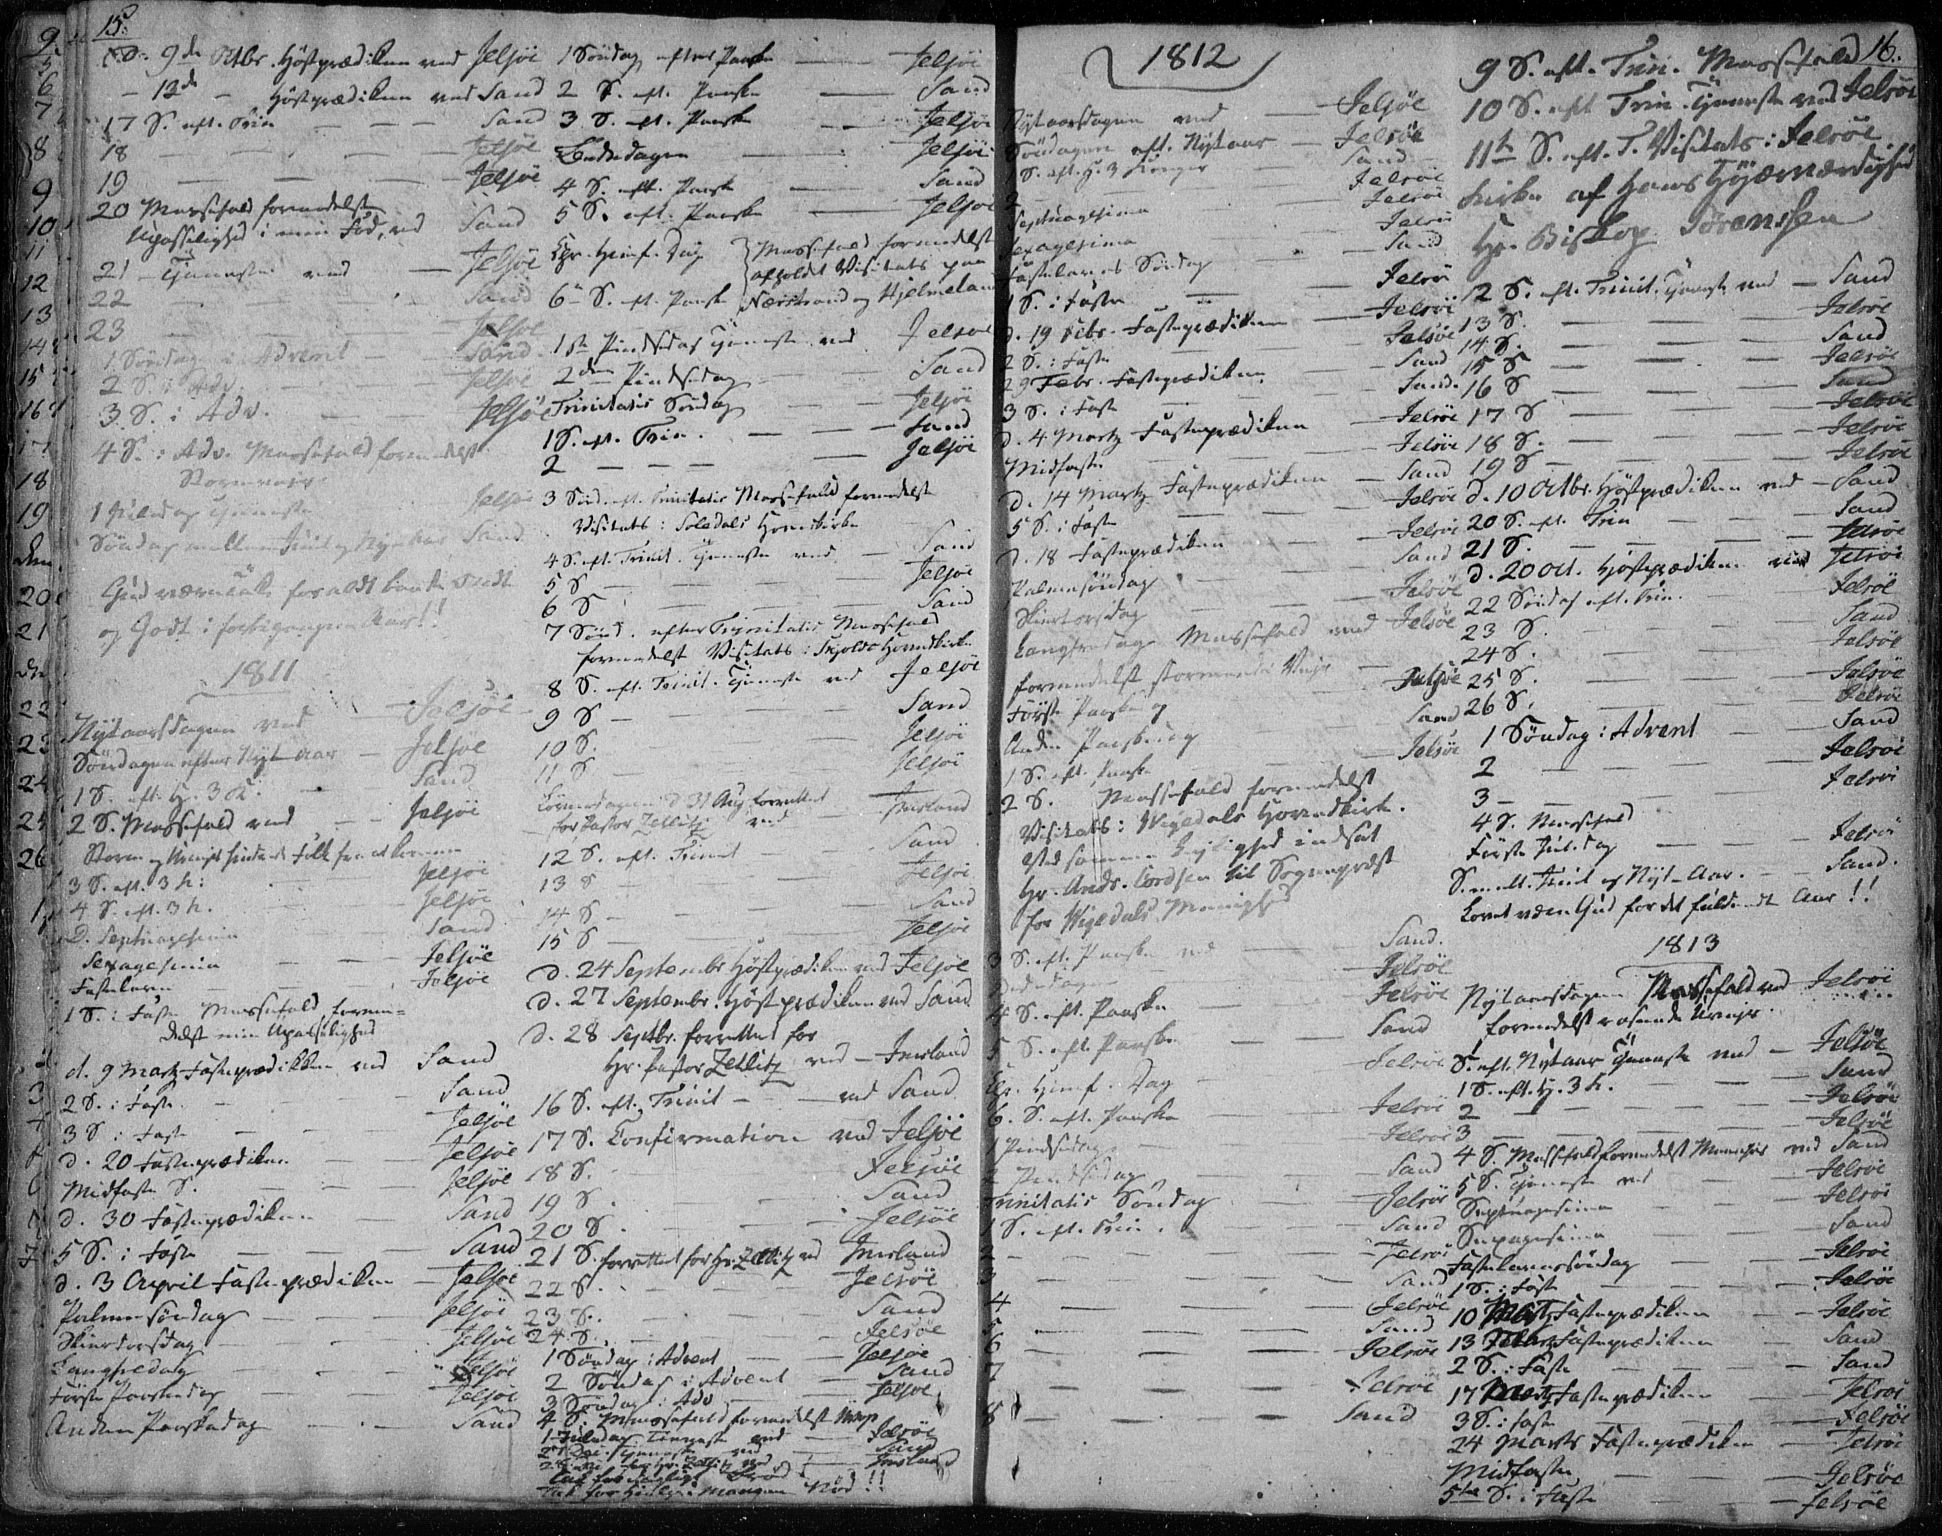 15.
d. 9de Octbr. Höstprædiken ved Jelsöe
- 13de - Höstprædiken ved Sand
17 S. eft. Trin - - - Sand
18 - - - - Jelsöe
19 - - - - Jelsöe
20 Messefald formedelst
Upasselighed i min Fod, ved Sand
21 - Tjeneste ved - Jelsöe
22 - - - Sand
23 - - - Jelsöe
1 Söndag i Advent - Sand
2 S. i Adv. - Jelsöe
3 S. i Adv. - Jelsöe
4 S. i Adv. Messefald formedelst
Stormveir
1 Juledag Tjeneste Jelsöe
Söndag mellem Juul og Nyt Aar Sand
Gud være Tak for aldt
og Godt i
1811
Nytaarsdagen ved - Jelsöe
Söndagen efter Nyt-aar - Jelsöe
1 S. eft. H. 3 K. - Sand
2 S. Messefald ved - Jelsöe
Storm og
3 S. eft. 3 h. - Jelsöe
4 S. eft. 3 h. - Jelsöe
D. Septuagesima - Sand
Sexagesima - - Jelsöe
Fastelavn - - Jelsöe
1 S. i Faste Messefald formedelst min Upasselighed
d. 9 Martz Fasteprædikken ved Sand
2 S. i Faste - - Sand
3 S. i Faste - - Jelsöe
d. 20 Fasteprædiken - Jelsöe
Midfaste S. - - Jelsöe
d. 30 Fasteprædiken - Sand
5 S. i Faste - - Sand
d. 3 April Fasteprædiken - Jelsöe
Palmesöndag - - Jelsöe
Skiertorsdag - - Jelsöe
Langfredag - - Jelsöe
Förste Paaskedag - Jelsöe
Anden Paaskedag - - Sand
1 Söndag efter Paaske - Jelsöe
2 S. eft. Paaske - Sand
3 S. eft. Paaske - Jelsöe
Bededagen - - Jelsöe
4 S. eft. Paaske - Sand
5 S. eft. Paaske - Jelsöe
Chr. Himf. Dag
6te S. eft. Paaske
Messefald formedelst
afholdet Visitats paa
Nærstrand og Hjelmeland
1ste Pindsedag Tjeneste ved Jelsöe
2den Pindsedag - Sand
Trinitatis Söndag - Jelsöe
1 S. eft. Trin. - - Sand
2 - - - Jelsöe
3 Sönd. eft. Trinitatis Messefald formedelst
Visitats i Soledals Hovedkirke
4 S. eft. Trinit. Tjeneste ved - Sand
5 S - - - Jelsöe
6 S - - - Sand
7 Sönd. efter Trinitatis Messefald
formedelst Visitats i Skjolds Hovedkirke
8 S. eft. Trinit. Tjeneste ved Jelsöe
9 S - - - Sand
10 S. - - - Jelsöe
11 S - - - Jelsöe
Löverdagen d. 31 Aug. forrettet
for Pastor Zetlitz ved - Imsland
12 S. eft. Trinit - - Sand
13 S - - - Jelsöe
14 S - - - Sand
15 S - - - Jelsöe
d. 24 Septembr Höstprædiken ved Jelsöe
d. 27 Septembr. Höstprædiken ved Sand
d. 28 Septbr. forrettet for
Hr. Pastor Zetlitz ved - Imsland
16 S. eft. Trinit - - ved Sand
17 S. Confirmation ved Jelsöe
18 S. - - - Jelsöe
19 S. - - - Sand
20 S. - - - Jelsöe
21 S. forrettet for Hr. Zetlitz ved Imsland
22 S. - - - Jelsöe
23 S. - - - Sand
24 S. - - - Jelsöe
1 Söndag i Advent - Jelsöe
2 Söndag i Advent - Sand
3 Söndag i Adv - Jelsöe
4 S. Messefald formedelst
1 Juledag Tieneste ved - Jelsöe
2den Tjeneste ved - Sand
Imsland
Tak for dagligt Bröd!
Tak for Hielp i mangen Nöd!!
1812
Nytaarsdagen ved - Jelsöe
Söndagen eft. Nytaar - Jelsöe
1 S. eft. H. 3 Konger - Sand
2 - - - Jelsöe
Septuagesima - Jelsöe
Sexagesima - Jelsöe
Fastelavns Söndag - Sand
1 S. i Faste - Jelsöe
d. 19 Febr. Fasteprædiken - Jelsöe
2 S. i Faste - Jelsöe
29 Febr. Fasteprædiken - Sand
3 S. i Faste - Sand
d. 4 Martz Fasteprædiken - Jelsöe
Midfaste - Jelsöe
d. 14 Martz Fasteprædiken - Sand
5 S. i Faste - Jelsöe
d. 18 Fasteprædiken - Jelsöe
Palmesöndag - Sand
Skiertorsdag - Jelsöe
Langfredag Messefald ved Jelsöe
formedelst stormende Veir
Förste Paaskedag - Jelsöe
Anden Paaskedag - Sand
1 S. eft. Paaske - Jelsöe
2 S. Messefald formedelst
Visitats i Wigedals Hovedkirke.
Ved samme Leylighed indsat
Hr. Ands. Cordsen til Sognepræst
for Wigedals Menighed
3 S. eft. Paaske ved - Sand.
Bededagen - Jelsöe
4 S. eft. Paaske - Jelsöe
5 S. eft. Paaske - Sand
Chr. Himf. Dag - Jelsöe
6. S. eft. Paaske - Jelsöe
1 Pindsedag - Jelsöe
2 Pindsedag - Sand
Trinitatis Söndag - Jelsöe
1 S. eft. Trin. - Sand
2 - - - Jelsöe
3 - - - Sand
4 - - - Jelsöe
5 - - - Sand
6 - - - Jelsöe
7 - - - Jelsöe
8 - - - Sand
16.
9 S. eft. Trin. Messefald
10 S. eft Trin. Tjeneste ved Jelsöe
11te S. eft. T. Visitats i Jelsöe
Kirke af Hans Höjærværdighed
Hr. Biskop Sörensen
12 S. eft. Trinit. Tjeneste ved - Sand
13 S. - - - Jelsöe
14 S. - - - Sand
15 S - - - Jelsöe
16 S - - - Sand
17 S - - - Jelsöe
18 S. - - - Jelsöe
19 S - - - Jelsöe
d. 10 Octbr. Höstprædiken ved - Sand
20 S. eft. Trin - - Sand
21 S. - - - Jelsöe
d. 20 Oct. Höstprædiken ved Jelsöe
22 Söndag eft. Trin. - Jelsöe
23 S. - - - Sand
24 S. - - - Jelsöe
25 S. - - - Jelsöe
26 S. - - - Jelsöe
1 Söndag i Advent - Sand
2 - - - Jelsöe
3 - - - Jelsöe
4 S. Messefald
Förste Juledag - - Jelsöe
S. mell. Juul og Nyt-Aar. - Sand.
Lovet være Gud for det fuldendte Aar!!
1813
Nytaarsdagen Messefald ved Jelsöe
formedelst rasende Veir.
S. eft. Nytaar Tjeneste ved - Jelsöe
1 S. eft. H. 3 h. - Sand
2 - - - Jelsöe
3 - - - Jelsöe
4 S. Messefald formedelst ved Sand
5 S. Tjeneste ved - Jelsöe
Septuagesima - Jelsöe
Sexagesima - Sand
Fastelavnssöndag - Jelsöe
1 S. i Faste - Jelsöe
10 Martz Fasteprædiken - Jelsöe
13 Fasteprædiken - Sand
2 S. i Faste - Sand
17 Martz Fasteprædiken - Jelsöe
3 S. i Faste - Jelsöe
24 Marts Fasteprædiken - Jelsöe
Midfaste - Jelsöe
5te S. i Faste - Jelsöe